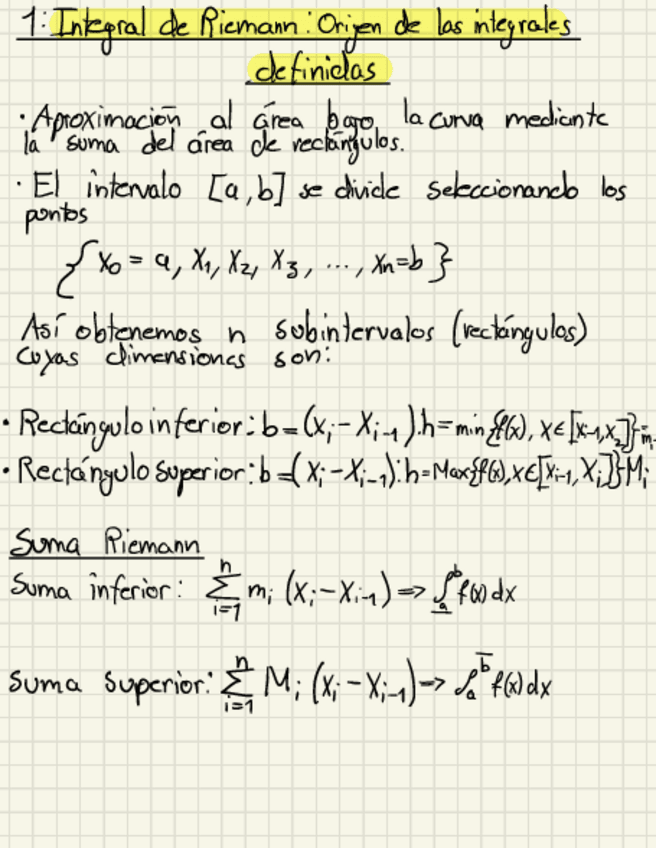 1: Integral de Riemann: Origen de las integrales
definidas
· Aproximación al área bajo la curva mediante
la suma del área de rectángulos.
· El intervalo [a,b] se divide seleccionando los
puntos
{x₀ = a, x₁, x₂, x₃, ..., xₙ=b}
Así obtenemos n subintervalos (rectángulos)
cuyas dimensiones son:
· Rectángulo inferior: b=(xᵢ-xᵢ₋₁).h=min{f(x), x∈[xᵢ₋₁,xᵢ]}=mᵢ
· Rectángulo superior: b=(xᵢ-xᵢ₋₁).h=Max{f(x),x∈[xᵢ₋₁,xᵢ]}Mᵢ
Suma Riemann
Suma inferior: ∑ᵢ₌₁ⁿ mᵢ (xᵢ-xᵢ₋₁) => ∫ₐᵇ f(x)dx
Suma superior: ∑ᵢ₌₁ⁿ Mᵢ (xᵢ-xᵢ₋₁) => ∫ₐᵇ f(x)dx